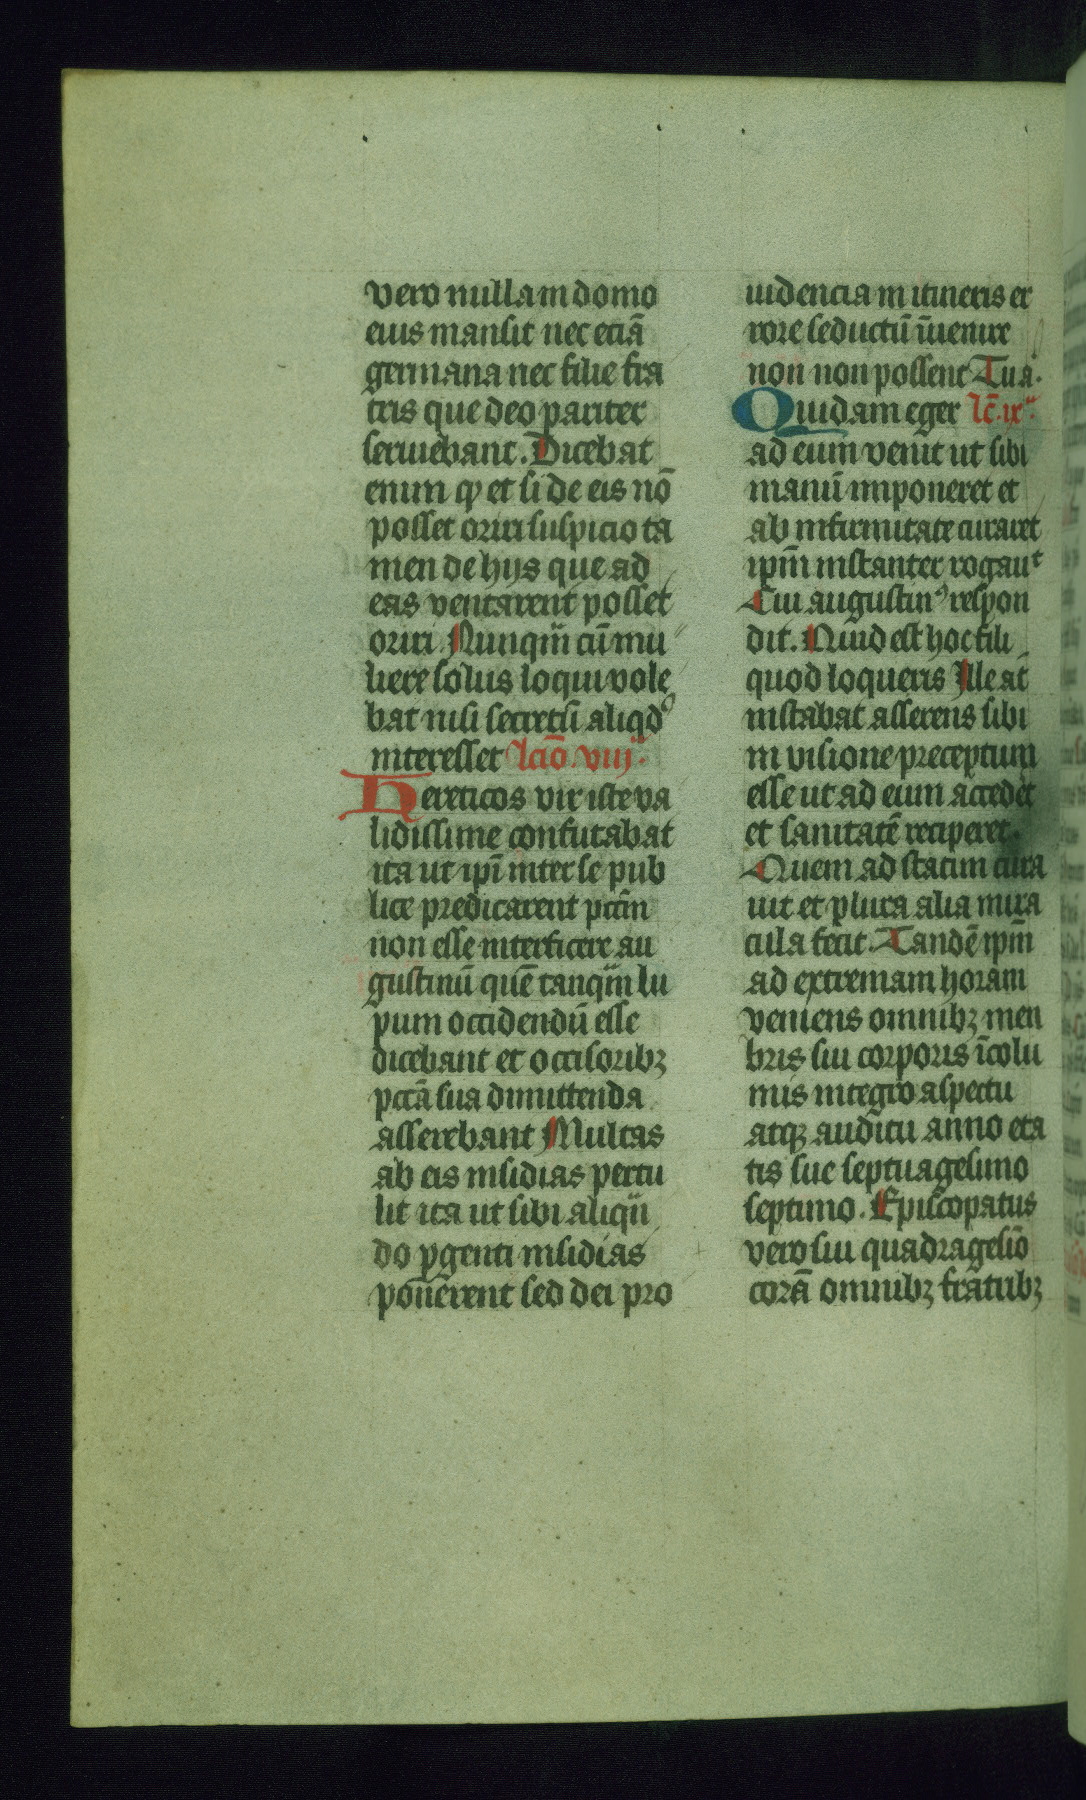 vero nullam domo
eius mansit nec eciā
germana nec filie fra
tris que deo pariter
seruiebant. Dicebat
enim ꝙ et si de eis nō
posset oriri suspicio ta
men de hijs que ad
eas ventarent posset
oriri. Nunqm̄ cū mu
liere solus loqui vole
bat nisi secretū aliqd
interesset lcīo. viij.
Hereticos vir iste va
lidissime confutabat
ita ut ipī inter se pub
lice predicarent pctm̄
non esse interficere au
gustinū quē tanqm̄ lu
pum occidendū esse
dicebant et occisoribꝫ
pctā sua dimittenda
asserebant Multas
ab eis insidias pertu
lit ita ut sibi aliqn̄
do ꝑgenti insidias
ponerent sed dei pro
uidencia in itineris er
rore seductū īuenire
non non possent Tu a.
Quidam eger lc̄. ix
ad eum venit ut sibi
manū imponeret et
ab infirmitate curaret
ipm̄ instanter rogauᵗ
Cui augustinꝰ respon
dit. Quid est hoc fili
quod loqueris Ille at
instabat asserens sibi
in visione preceptum
esse ut ad eum accedēt
et sanitatē reciperet.
Quem ad statim cura
uit et plura alia mira
cula fecit. Tandē ipm̄
ad extremam horam
veniens omnibꝫ men
bris sui corporis īcolu
mis integro aspectu
atqꝫ auditu anno eta
tis sue septuagesimo
septimo. Episcopatus
vero sui quadragesīo
corā omnibꝫ fratribꝫ